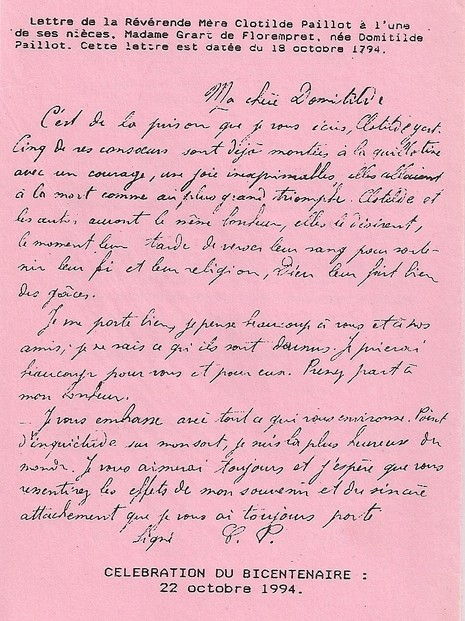 Lettre de la Révérende Mère Clotilde Paillot à l'une
de ses nièces, Madame Grart de Florempret, née Domitilde
Paillot. Cette lettre est datée du 18 octobre 1794.
Ma chère Domitilde
C'est de la prison que je vous écris, Clotilde y est.
Cinq de ses consoeurs sont déjà montées à la guillotine
avec un courage, une joie inexprimables, elles allaient
à la mort comme au plus grand triomphe. Clotilde et
les autres auront le même bonheur, elles le désirent,
le moment leur tarde de verser leur sang pour soute-
nir leur foi et leur religion, Dieu leur fait bien
des grâces.
Je me porte bien, je pense beaucoup à vous et à nos
amis; je ne sais ce qu'ils sont devenus. Je prierai
beaucoup pour vous et pour eux. Prenez part à
mon bonheur.
Je vous embrasse avec tout ce qui vous environne. Point
d'inquiétude sur mon sort, je suis la plus heureuse du
monde. Je vous aimerai toujours et j'espère que vous
ressentirez les effets de mon souvenir et du sincère
attachement que je vous ai toujours porté
Signé C. P.
CELEBRATION DU BICENTENAIRE :
22 octobre 1994.